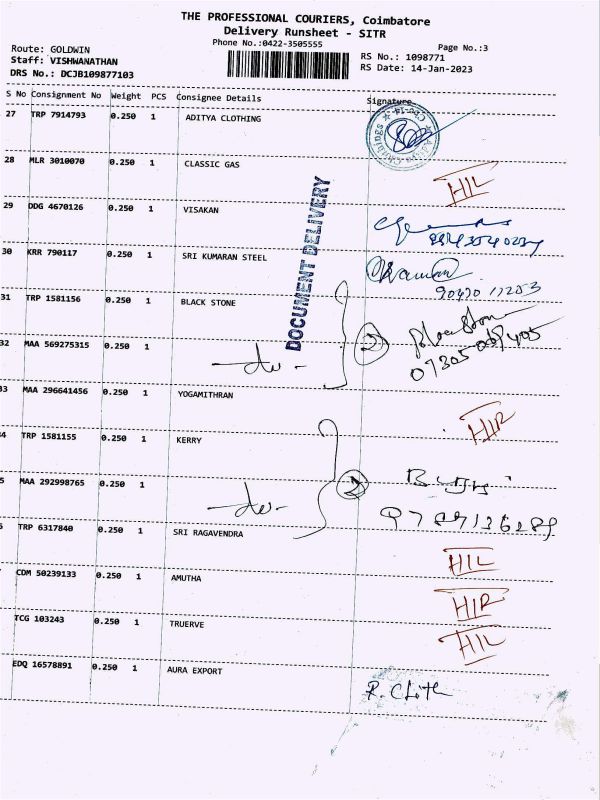 THE PROFESSIONAL COURIERS, Coimbatore
Delivery Runsheet - SITR
Phone No.:0422-3505555
Page No.:3
Route: GOLDWIN
Staff: VISHWANATHAN
DRS No.: DCJB109877103
RS No.: 1098771
RS Date: 14-Jan-2023
S No Consignment No Weight PCS Consignee Details Signature
27 TRP 7914793 0.250 1 ADITYA CLOTHING
28 MLR 3010070 0.250 1 CLASSIC GAS HIL
29 DDG 4670126 0.250 1 VISAKAN
30 KRR 790117 0.250 1 SRI KUMARAN STEEL
DOCUMENT DELIVERY
31 TRP 1581156 0.250 1 BLACK STONE
32 MAA 569275315 0.250 1 2
33 MAA 296641456 0.250 1 YOGAMITHRAN HIR
4 TRP 1581155 0.250 1 KERRY
5 MAA 292998765 0.250 1 2
TRP 6317840 0.250 1 SRI RAGAVENDRA HIL
CDM 50239133 0.250 1 AMUTHA HIR
TCG 103243 0.250 1 TRUERVE HIL
EDQ 16578891 0.250 1 AURA EXPORT